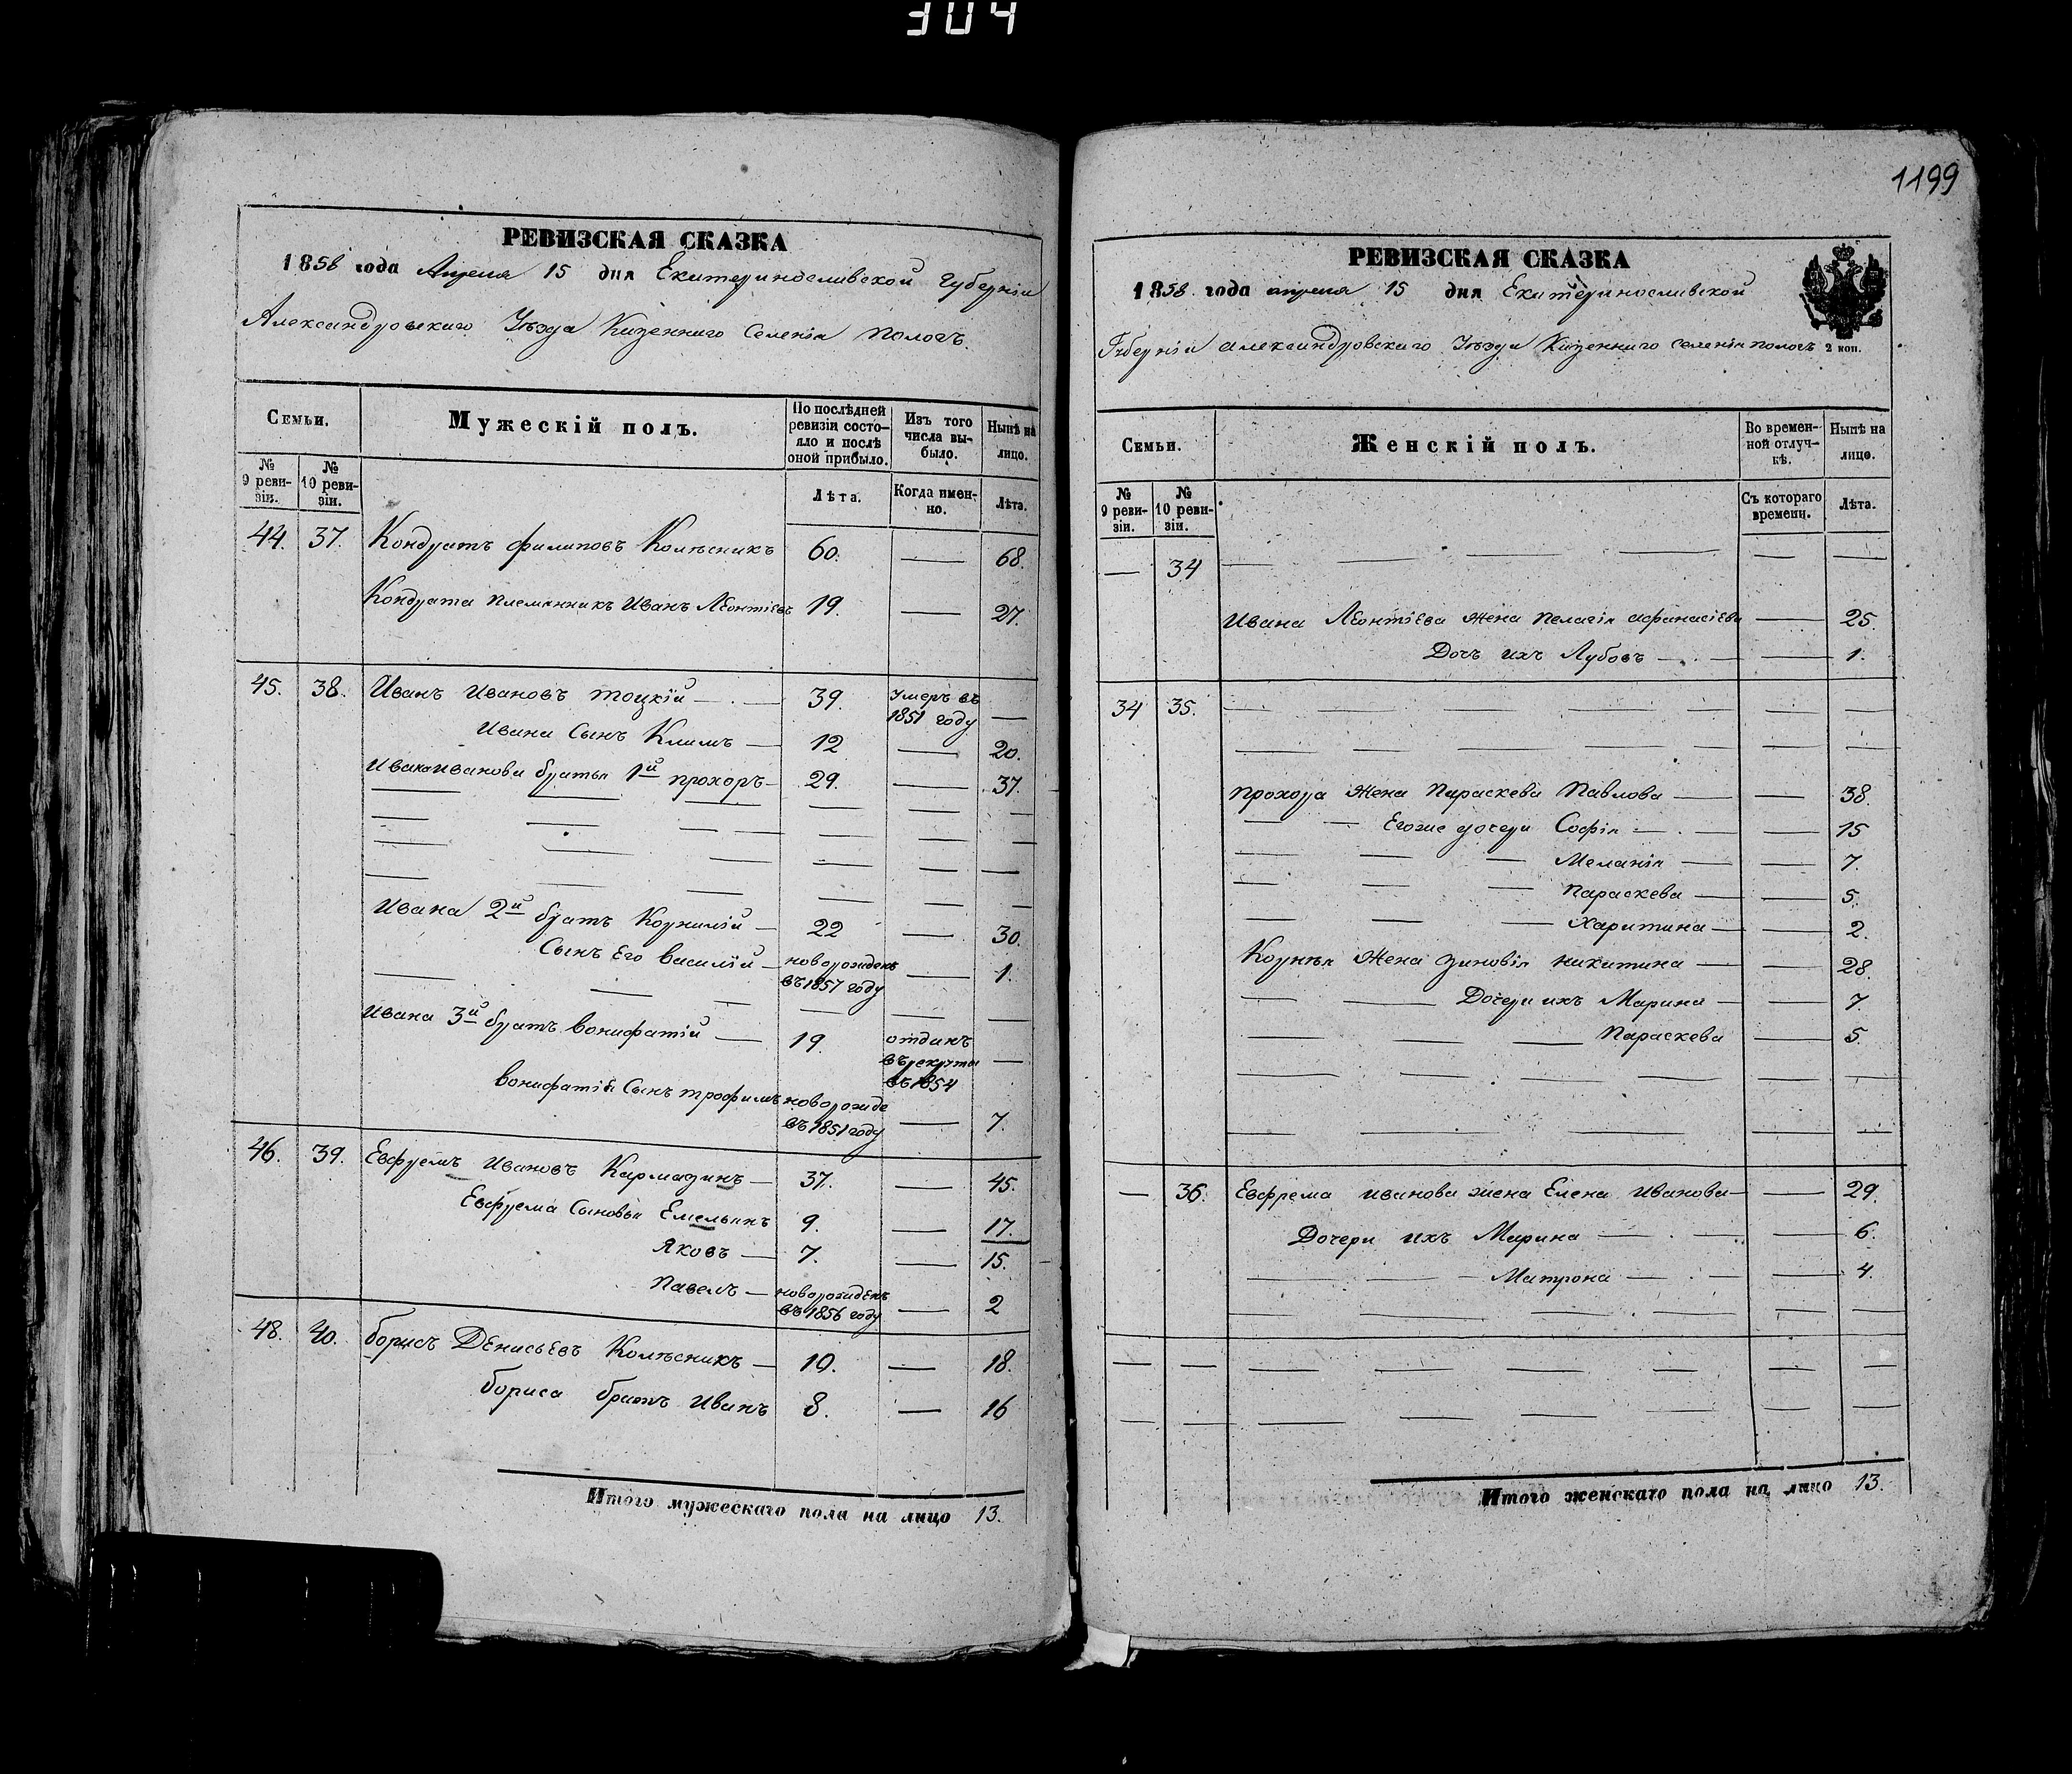 304
1199
РЕВИЗСКАЯ СКАЗКА
1858 года Апреля 15 дня Екатеринославской Губерніи
Александровскаго Уѣзда Казеннаго Селенія Пологъ.
Семьи.
Мужескій полъ.
По послѣдней ревизіи состояло и послѣ оной прибыло.
Изъ того числа выбыло.
Нынѣ на лицо.
№ 9 ревизіи.
№ 10 ревизіи.
Лѣта.
Когда именно.
Лѣта.
44. 37. Кондратъ филиповъ Колѣсникъ 60. — 68.
Кондрата племянникъ Иванъ Леонтіевъ 19. — 27.
45. 38. Иванъ Ивановъ тоцкій — 39. Умеръ въ 1851 году —
Ивана Сынъ Климъ — 12 — 20.
Ивана Иванова братья 1й прохоръ — 29. — 37.
Ивана 2й братъ Корнилій — 22 — 30.
Сынъ Его Василій — новорожденъ въ 1857 году — 1.
Ивана 3й братъ Вонифатій — 19. отданъ въ рекруты въ 1854 —
Вонифатія Сынъ трофимъ новорожде въ 1851 году — 7.
46. 39. Евфремъ Ивановъ Кармазинъ — 37. — 45.
Евфрема Сыновья Емельянъ 9. — 17.
Яковъ — 7. — 15.
Павелъ — новорожденъ въ 1856 году — 2
48. 40. борисъ Денисьевъ Колѣсникъ — 10. — 18.
бориса братъ Иванъ 8. — 16
Итого мужескаго пола на лицо 13.
РЕВИЗСКАЯ СКАЗКА
1858 года апреля 15 дня Екатеринославской
Губерніи александровскаго Уѣзда Казеннаго селенія пологъ 2 коп.
Семьи.
Женскій полъ.
Во временной отлучкѣ.
Нынѣ на лицо.
№ 9 ревизіи.
№ 10 ревизіи.
Съ котораго времени.
Лѣта.
— 34
Ивана Леонтіева жена пелагія афанасіева — 25.
Дочъ ихъ Лубовъ — 1.
34 35.
прохора жена Параскева Павлова — 38.
Егоже дочери Софія — 15
Меланія — 7.
Параскева — 5.
Харитина — 2.
Корнѣя жена зиновія никитина — 28.
Дочери ихъ Марина — 7.
Параскева — 5.
— 36. Евфрема иванова жена Елена Иванова — 29.
Дочери ихъ Марина — 6.
Матрона — 4.
Итого женскаго пола на лицо 13.